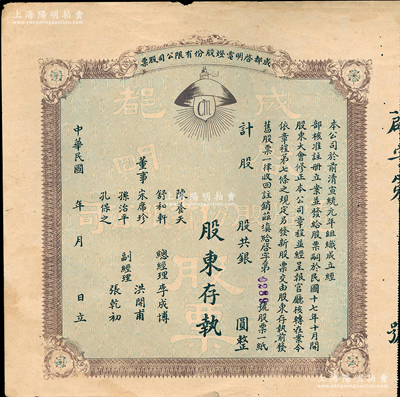 上海陽明拍賣
成都啓明電燈股份有限公司股票
本公司於前清宣統元年組織成立經
部核准註册立案並發給股票嗣於民國十七年十月開
股東大會修正本公司章程並經呈報官廳核轉准案今
依章程第七條之規定另發新股票交由股東存執前發
舊股票一律收回註銷茲填給啓字第 號股票一紙
計股 股共銀 圓整
股東存執
董事
陳養天
舒和軒
宋席珍
孫治平
孔保之
總經理 李成博
副經理
洪開甫
張乾初
中華民國 年 月 日立
啟字第 號